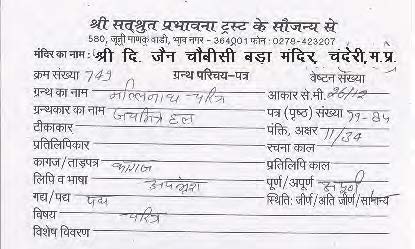 श्री सत्श्रुत प्रभावना ट्रस्ट के सौजन्य से
580, जूनी माणक वाडी, भाव नगर - 364001 फोन : 0278-423207
मंदिर का नाम : श्री दि. जैन चौबीसी बड़ा मंदिर, चंदेरी, म.प्र.
क्रम संख्या 749 ग्रन्थ परिचय-पत्र वेष्टन संख्या
ग्रन्थ का नाम मल्लिनाथ चरित्र आकार से.मी. 26/12
ग्रन्थकार का नाम जयमित्र हल पत्र (पृष्ठ) संख्या 79-84
टीकाकार पंक्ति, अक्षर 11/34
प्रतिलिपिकार रचना काल
कागज/ताड़पत्र कागज प्रतिलिपि काल
लिपि व भाषा अपभ्रंश पूर्ण/अपूर्ण
गद्य/पद्य पद्य स्थिति: जीर्ण/अति जीर्ण/सामान्य
विषय चरित्र
विशेष विवरण